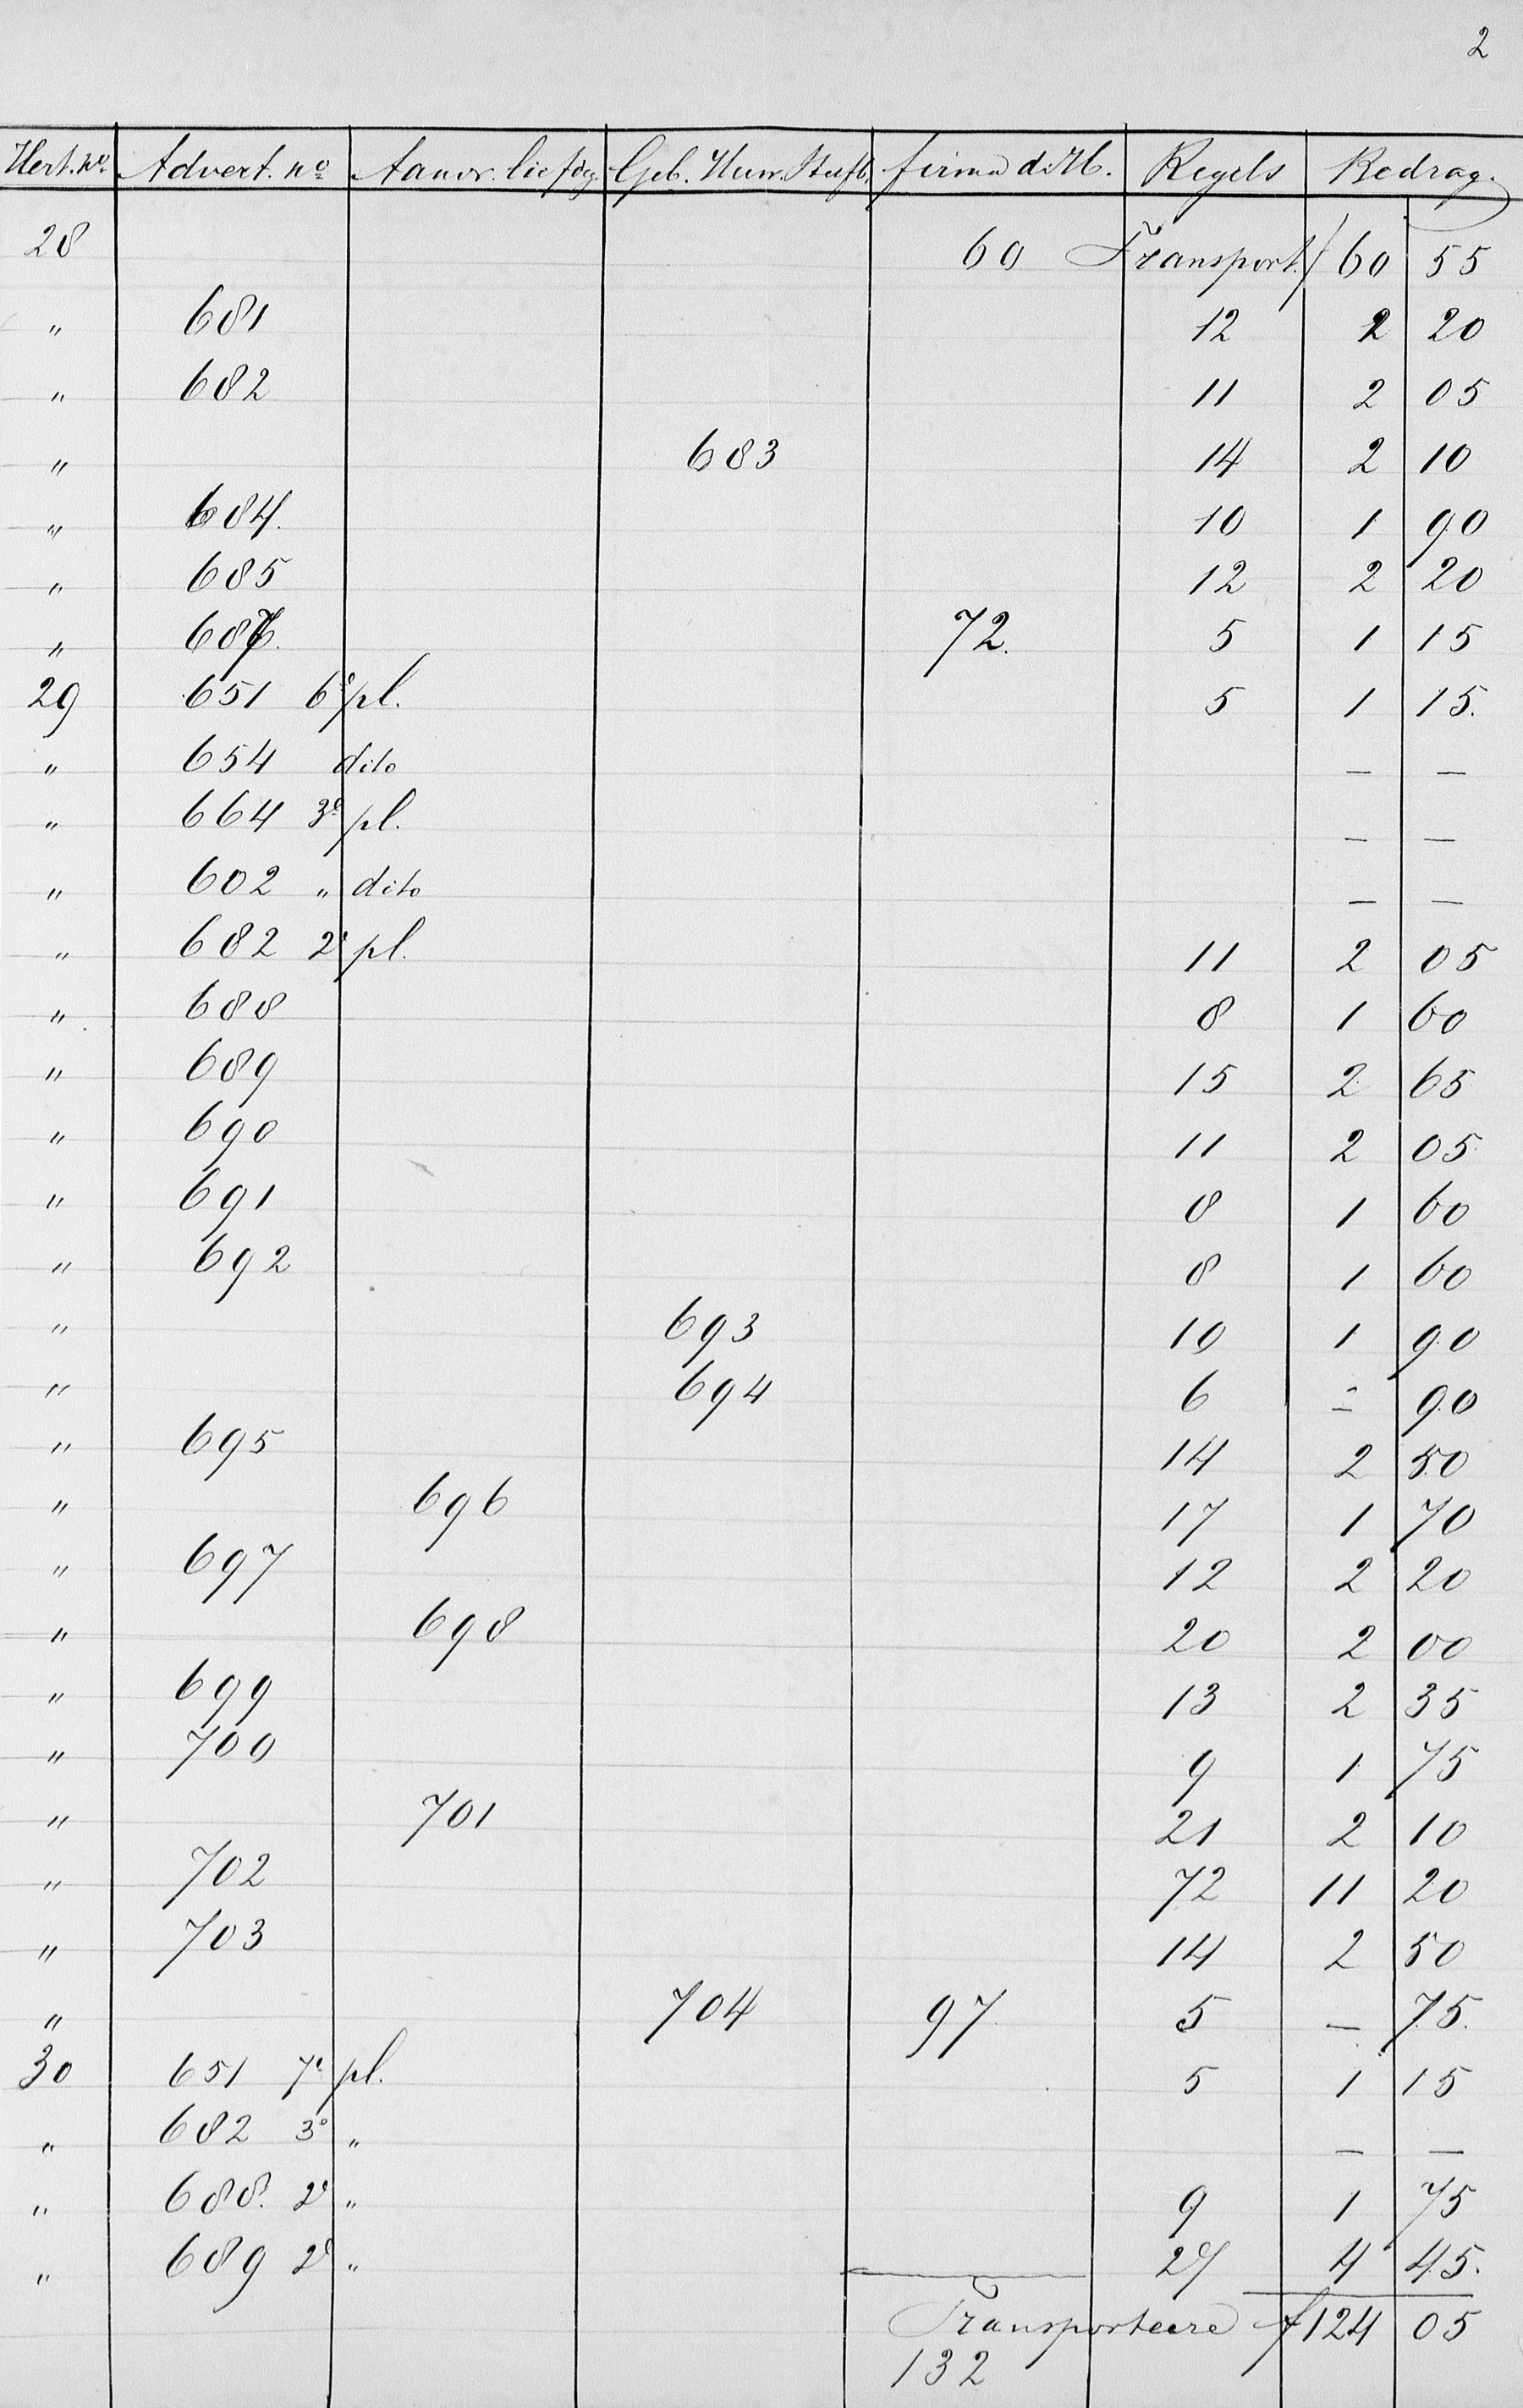 2
Advert. no Regels Bedrag.
28 60 Transport f 60 55
" 681 12 2 20
" 682 11 2 05
" 683 14 2 10
" 684. 10 1 90
" 685 12 2 20
" 72. 5 1 15
29 651 6e pl. 5 1 15.
" 654 dito — —
" 664 3e pl. — —
" 602 " dito — —
" 682 2e pl. 11 2 05
" 688 8 1 60
" 689 15 2 65
" 690 11 2 05
" 691 8 1 60
" 692 8 1 60
" 693 10 1 90
" 694 6 - 90
" 695 14 2 50
" 696 17 1 70
" 697 12 2 20
" 698 20 2 00
" 699 13 2 35
" 700 9 1 75
" 701 21 2 10
" 702 72 11 20
" 703 14 2 50
" 704 97 5 — 75.
30 651 7e pl. 5 1 15
" 682 3e " — —
" 688. 2e " 9 1 75
" 689 2e " 27 4 45.
Transporteere f 124 05
132